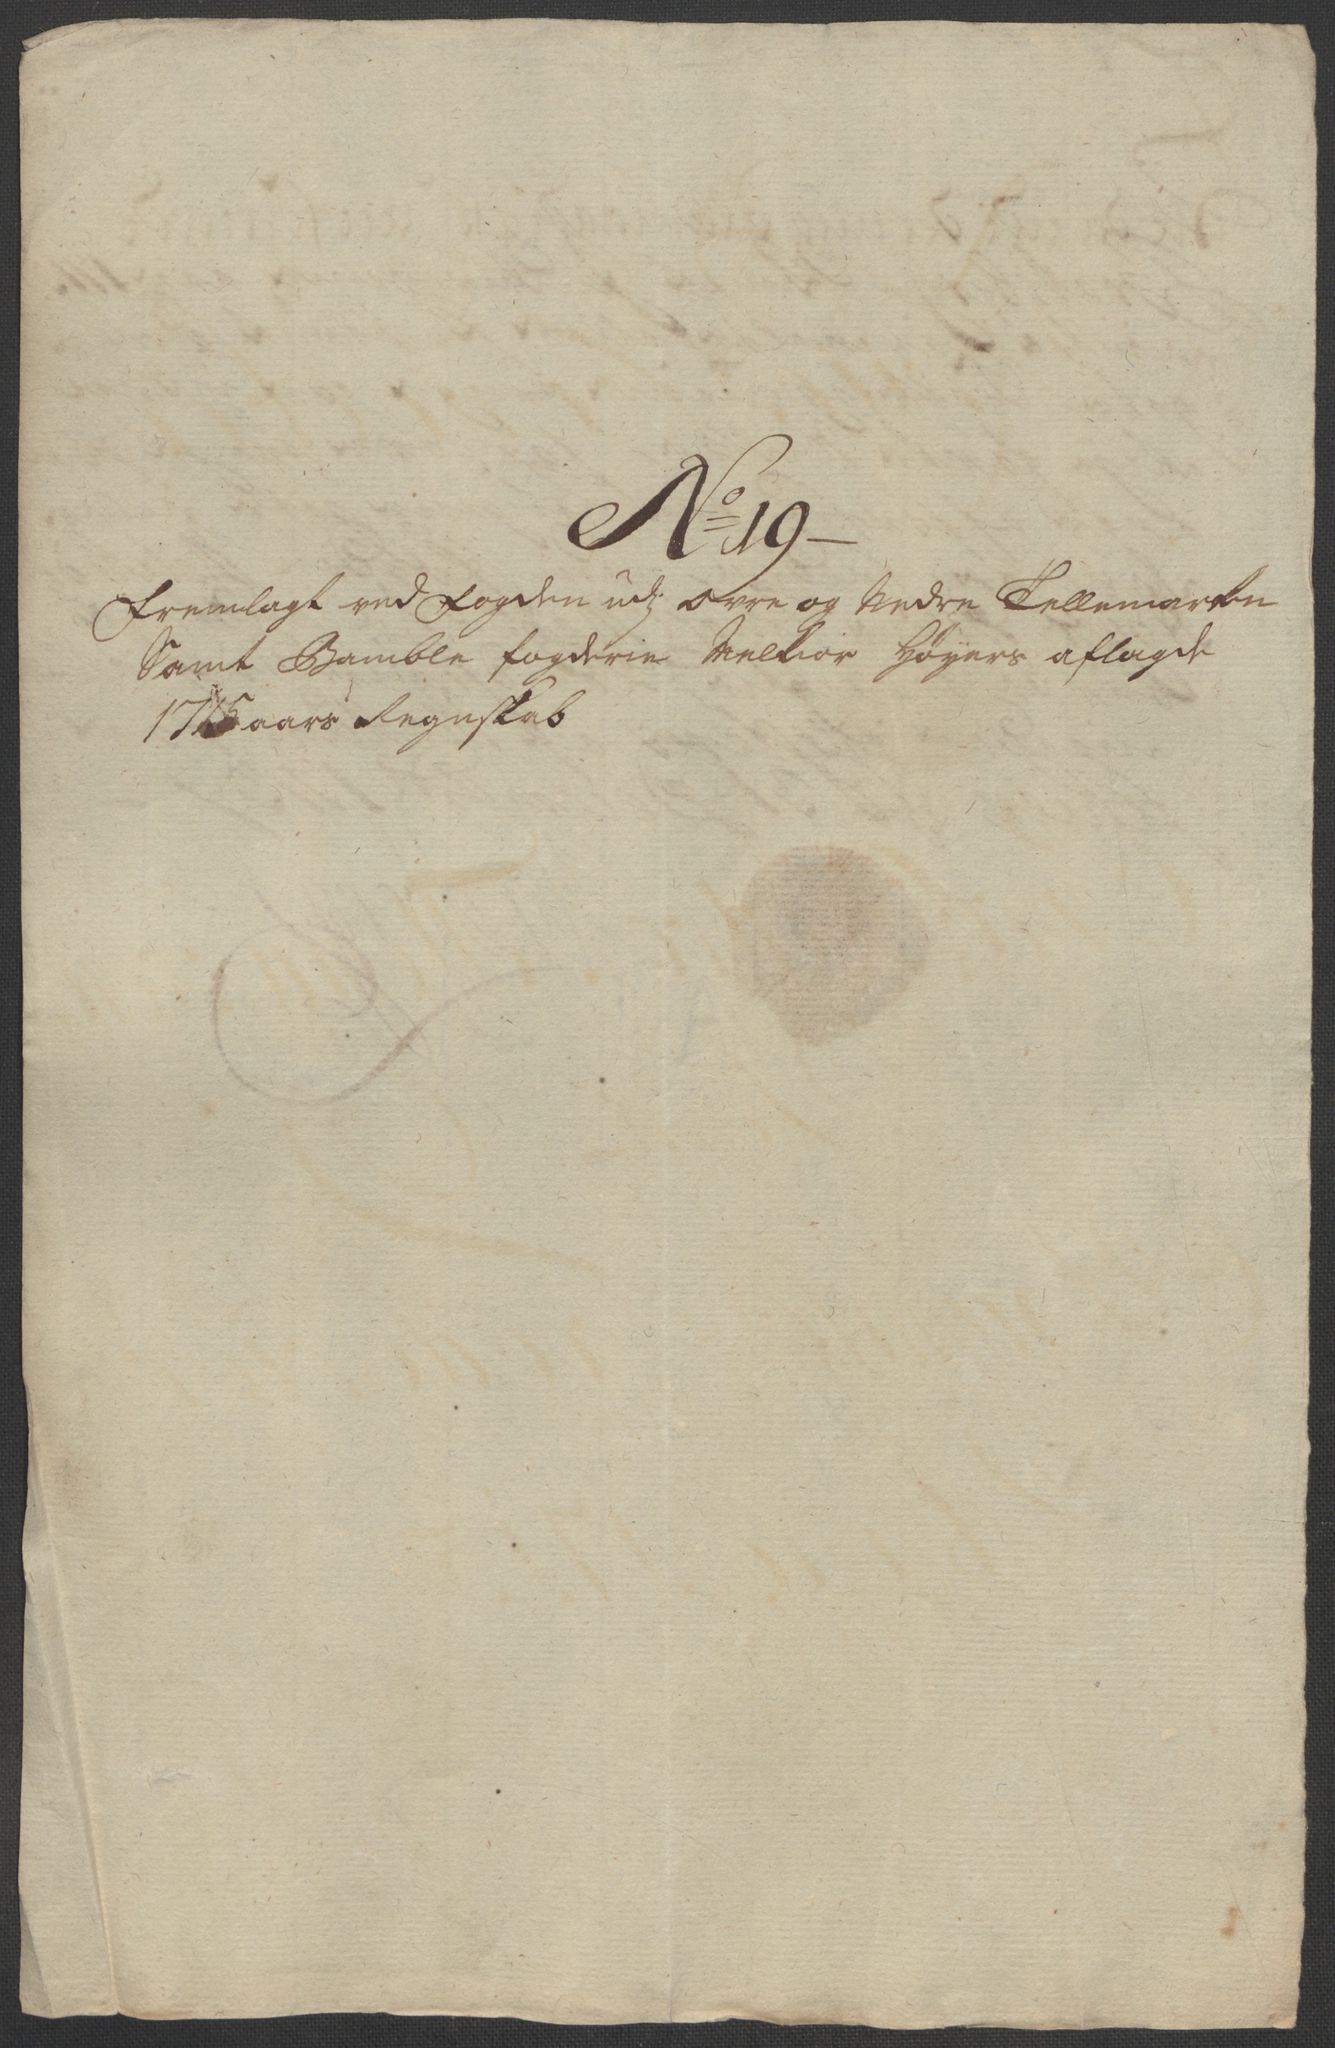 No 19
Fremlagt ved Fogden udj øvre og Nedre Tellemarken
Samt Bamble fogderie Melkior Høyers aflagde
1715 aars Regnskab